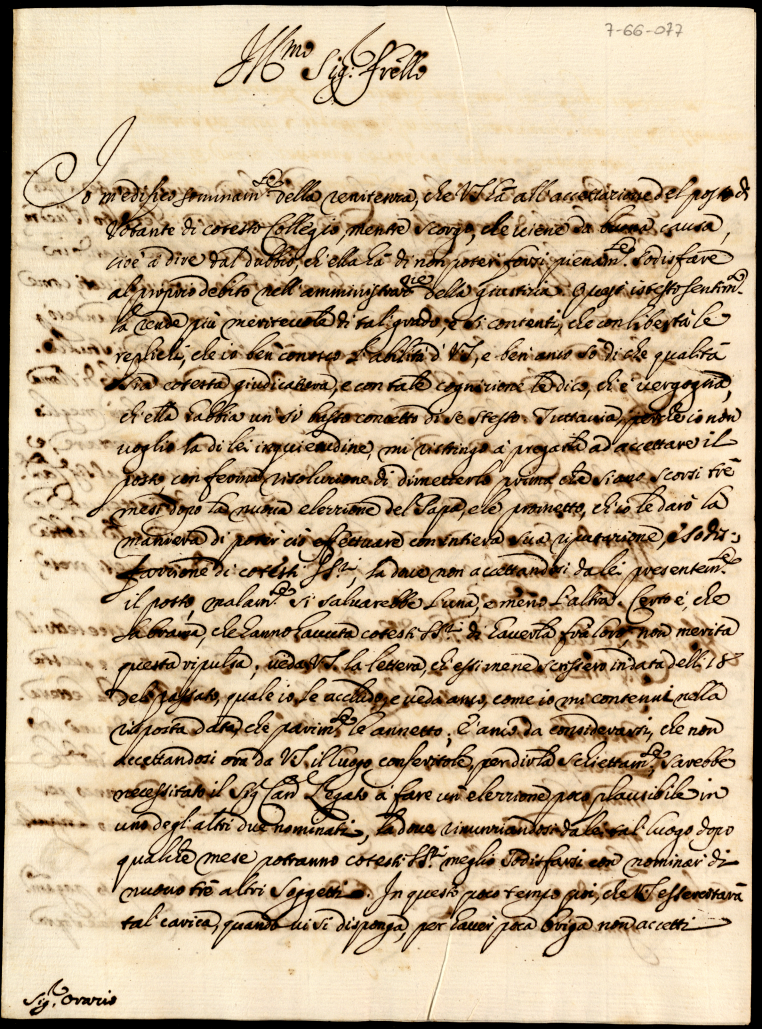 7-66-077
Ill.mo Sig.r Fr̃ello
Io m'edifico sommam.te della renitenza, che VS. hà all'accettazione del posto di
Votante di cotesto Collegio, mentre scorgo, che viene da buona causa,
cioè à dire dal dubbio, ch'ella hà di non poter forsi pienam.te sodisfare
al proprio debito nell'amministraz.ne della giustizia. Questo istesso sentim.to
la rende più meritevole di tal grado, e si contenti, che con libertà le
replichi, che io ben conosco l'abilità di VS., e ben anco sò di che qualità
sia cotesta giudicatura, e con tale cognizione le dico, ch'è vergogna,
ch'ella habbia un sì basso concetto di se stesso. Tuttavia, perche io non
voglio la di lei inquietudine, mi ristringo à pregarla ad accettare il
posto con ferma risoluzione di dimetterlo prima che siano scorsi trè
mesi dopo la nuova elezzione del Papa, e le prometto, ch'io le darò la
maniera di poter ciò effettuare con intiera sua riputazione, e sodis-
fazzione di cotesti SS.ri, la dove non accettandosi da lei presentem.te
il posto, malam.te si salvarebbe l'una, e meno l'altra. Certo è, che
la brama, che hanno havuta cotesti SS.ri di haverla frà loro, non merita
questa ripulsa; veda VS. la lettera, ch'essi mene scrissero in data delli 18
del passato, quale io le accludo, e veda anco, come io mi contenni nella
risposta data, che parim.te le annetto; E' anco da considerarsi, che non
accettandosi ora da VS. il luogo conferitole, per dirla schiettam.te, sarebbe
necessitato il Sig.r Card. Legato à fare un'elezzione poco plausibile in
uno degl'altri due nominati, la dove rinunziandosi da lei tal luogo dopo
qualche mese potranno cotesti SS.ri meglio sodisfarsi con nominar di
nuovo trè altri Soggetti. In questo poco tempo poi, che VS. essercitarà
tal carica, quando vi si disponga, per haver poca briga non accetti
Sig.r Orazio